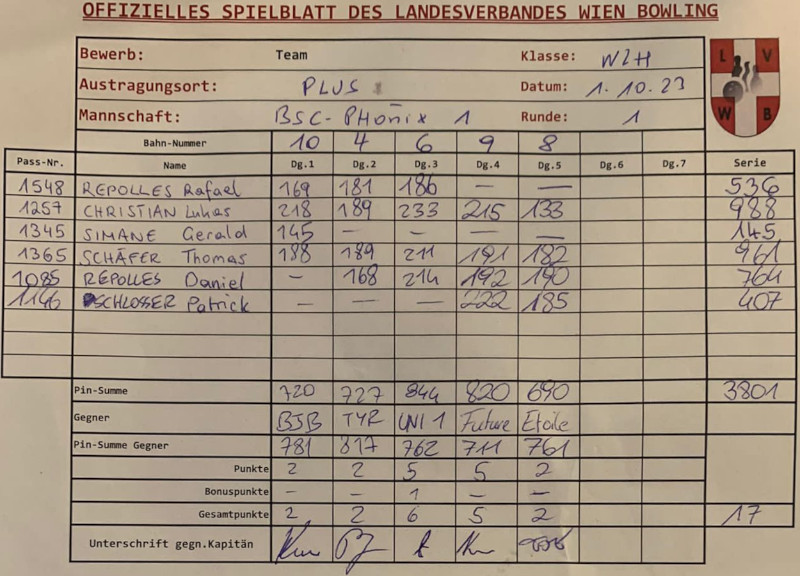 OFFIZIELLES SPIELBLATT DES LANDESVERBANDES WIEN BOWLING
Bewerb: Team Klasse: W2H
Austragungsort: PLUS Datum: 1.10.23
Mannschaft: BSC-PHÖNIX 1 Runde: 1
L V W B
Bahn-Nummer 10 4 6 9 8
Pass-Nr. Name Dg.1 Dg.2 Dg.3 Dg.4 Dg.5 Dg.6 Dg.7 Serie
1548 REPOLLES Rafael 169 181 186 — — 536
1257 CHRISTIAN Lukas 218 189 233 215 133 988
1345 SIMANE Gerald 145 — — — — 145
1365 SCHÄFER Thomas 188 189 211 191 182 961
1085 REPOLLES Daniel — 168 214 192 190 764
1146 SCHLOSSER Patrick — — — 222 185 407
Pin-Summe 720 727 844 820 690 3801
Gegner BJB TYR UNI 1 Future Etoile
Pin-Summe Gegner 781 817 762 711 761
Punkte 2 2 5 5 2
Bonuspunkte — — 1 — —
Gesamtpunkte 2 2 6 5 2 17
Unterschrift gegn.Kapitän